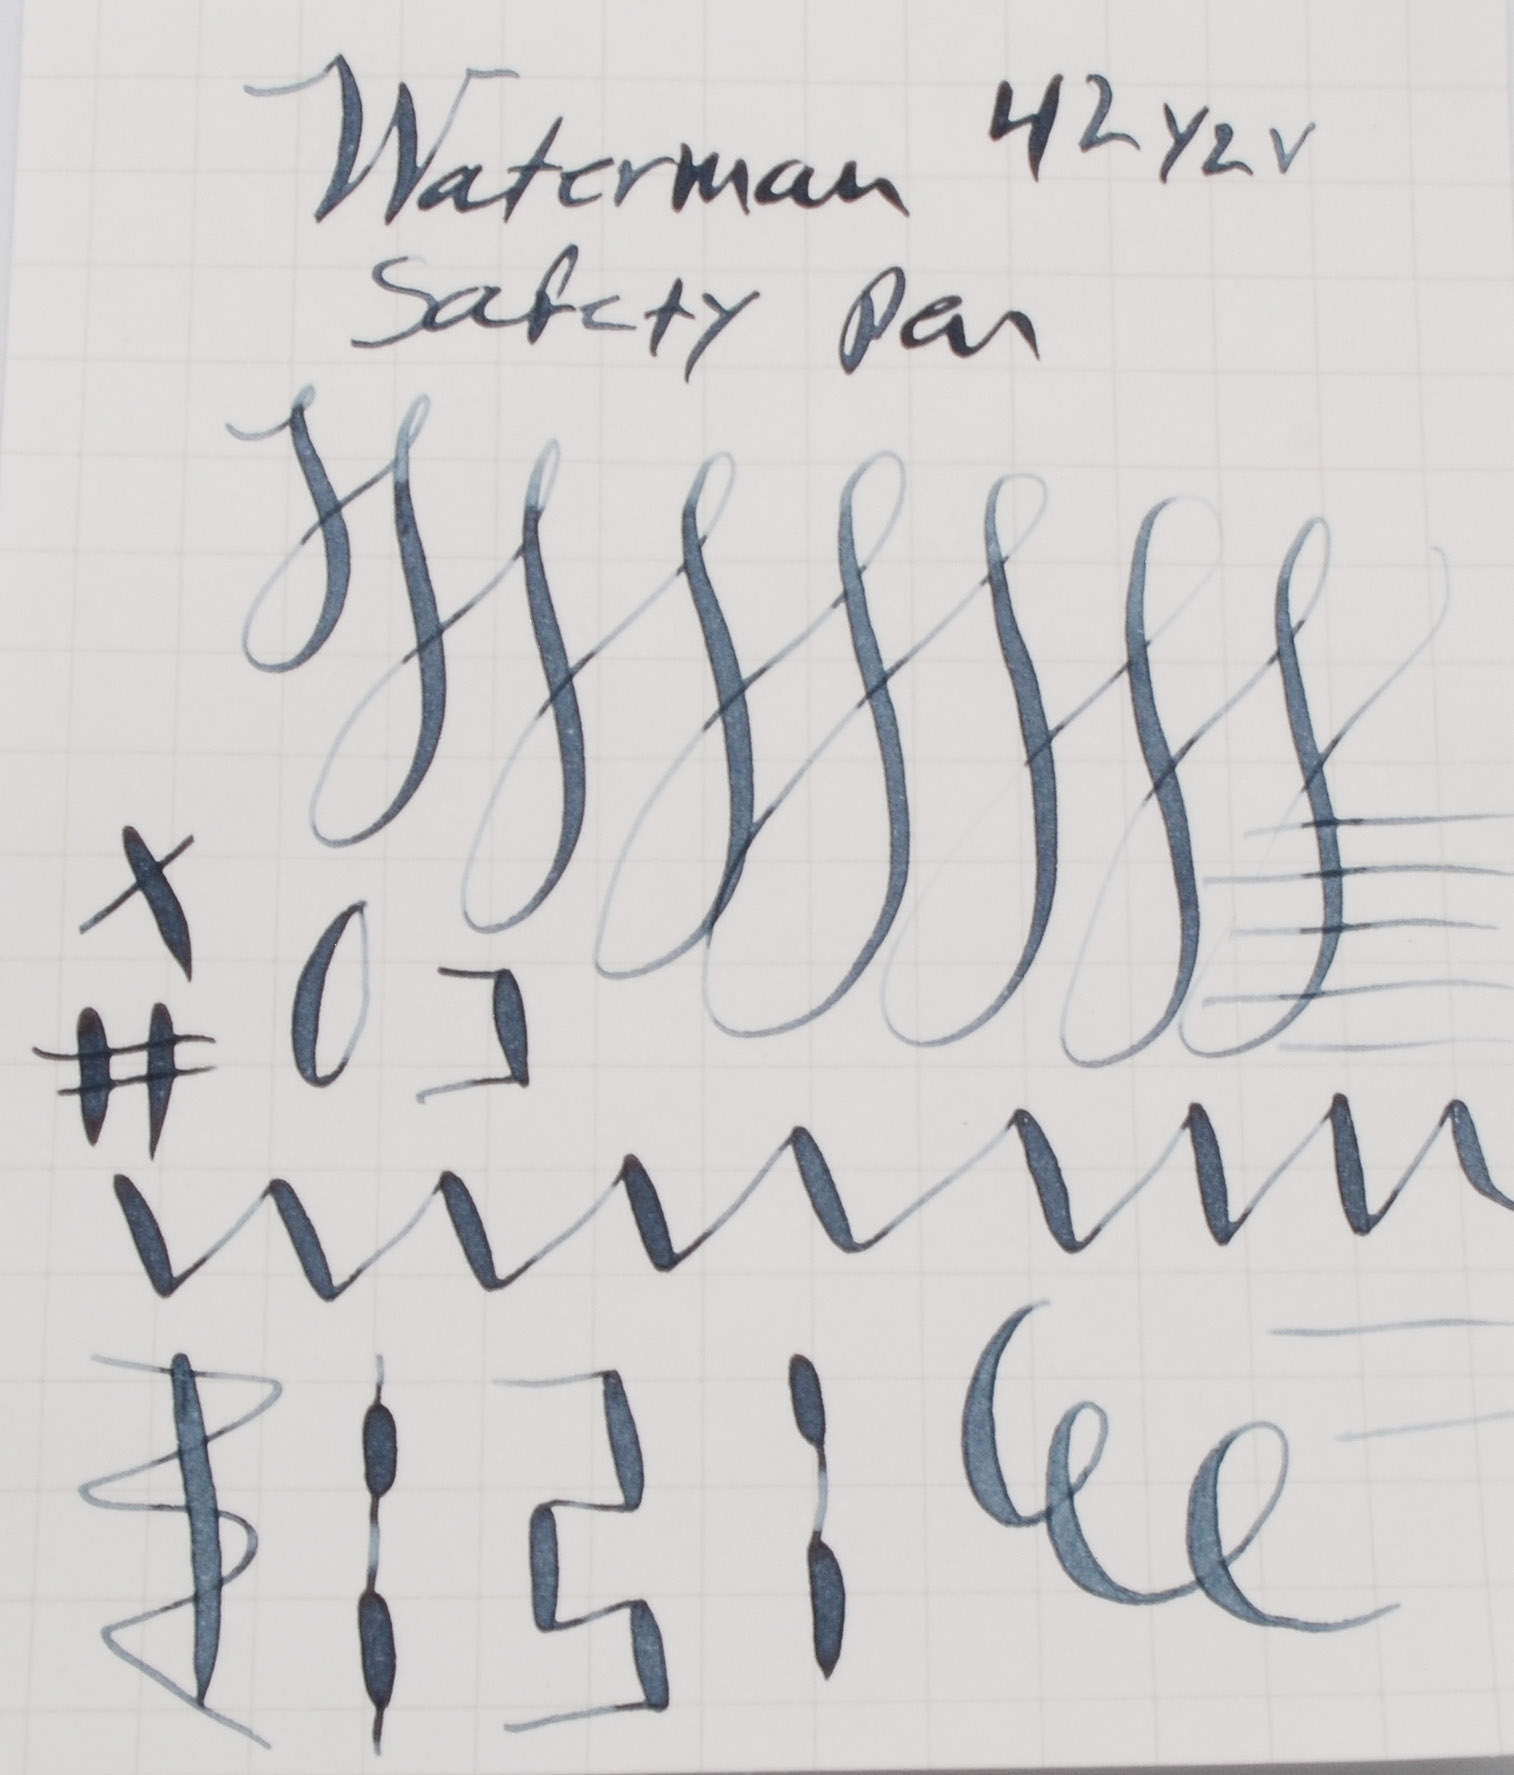 Waterman 42 1/2 V
Safety Pen